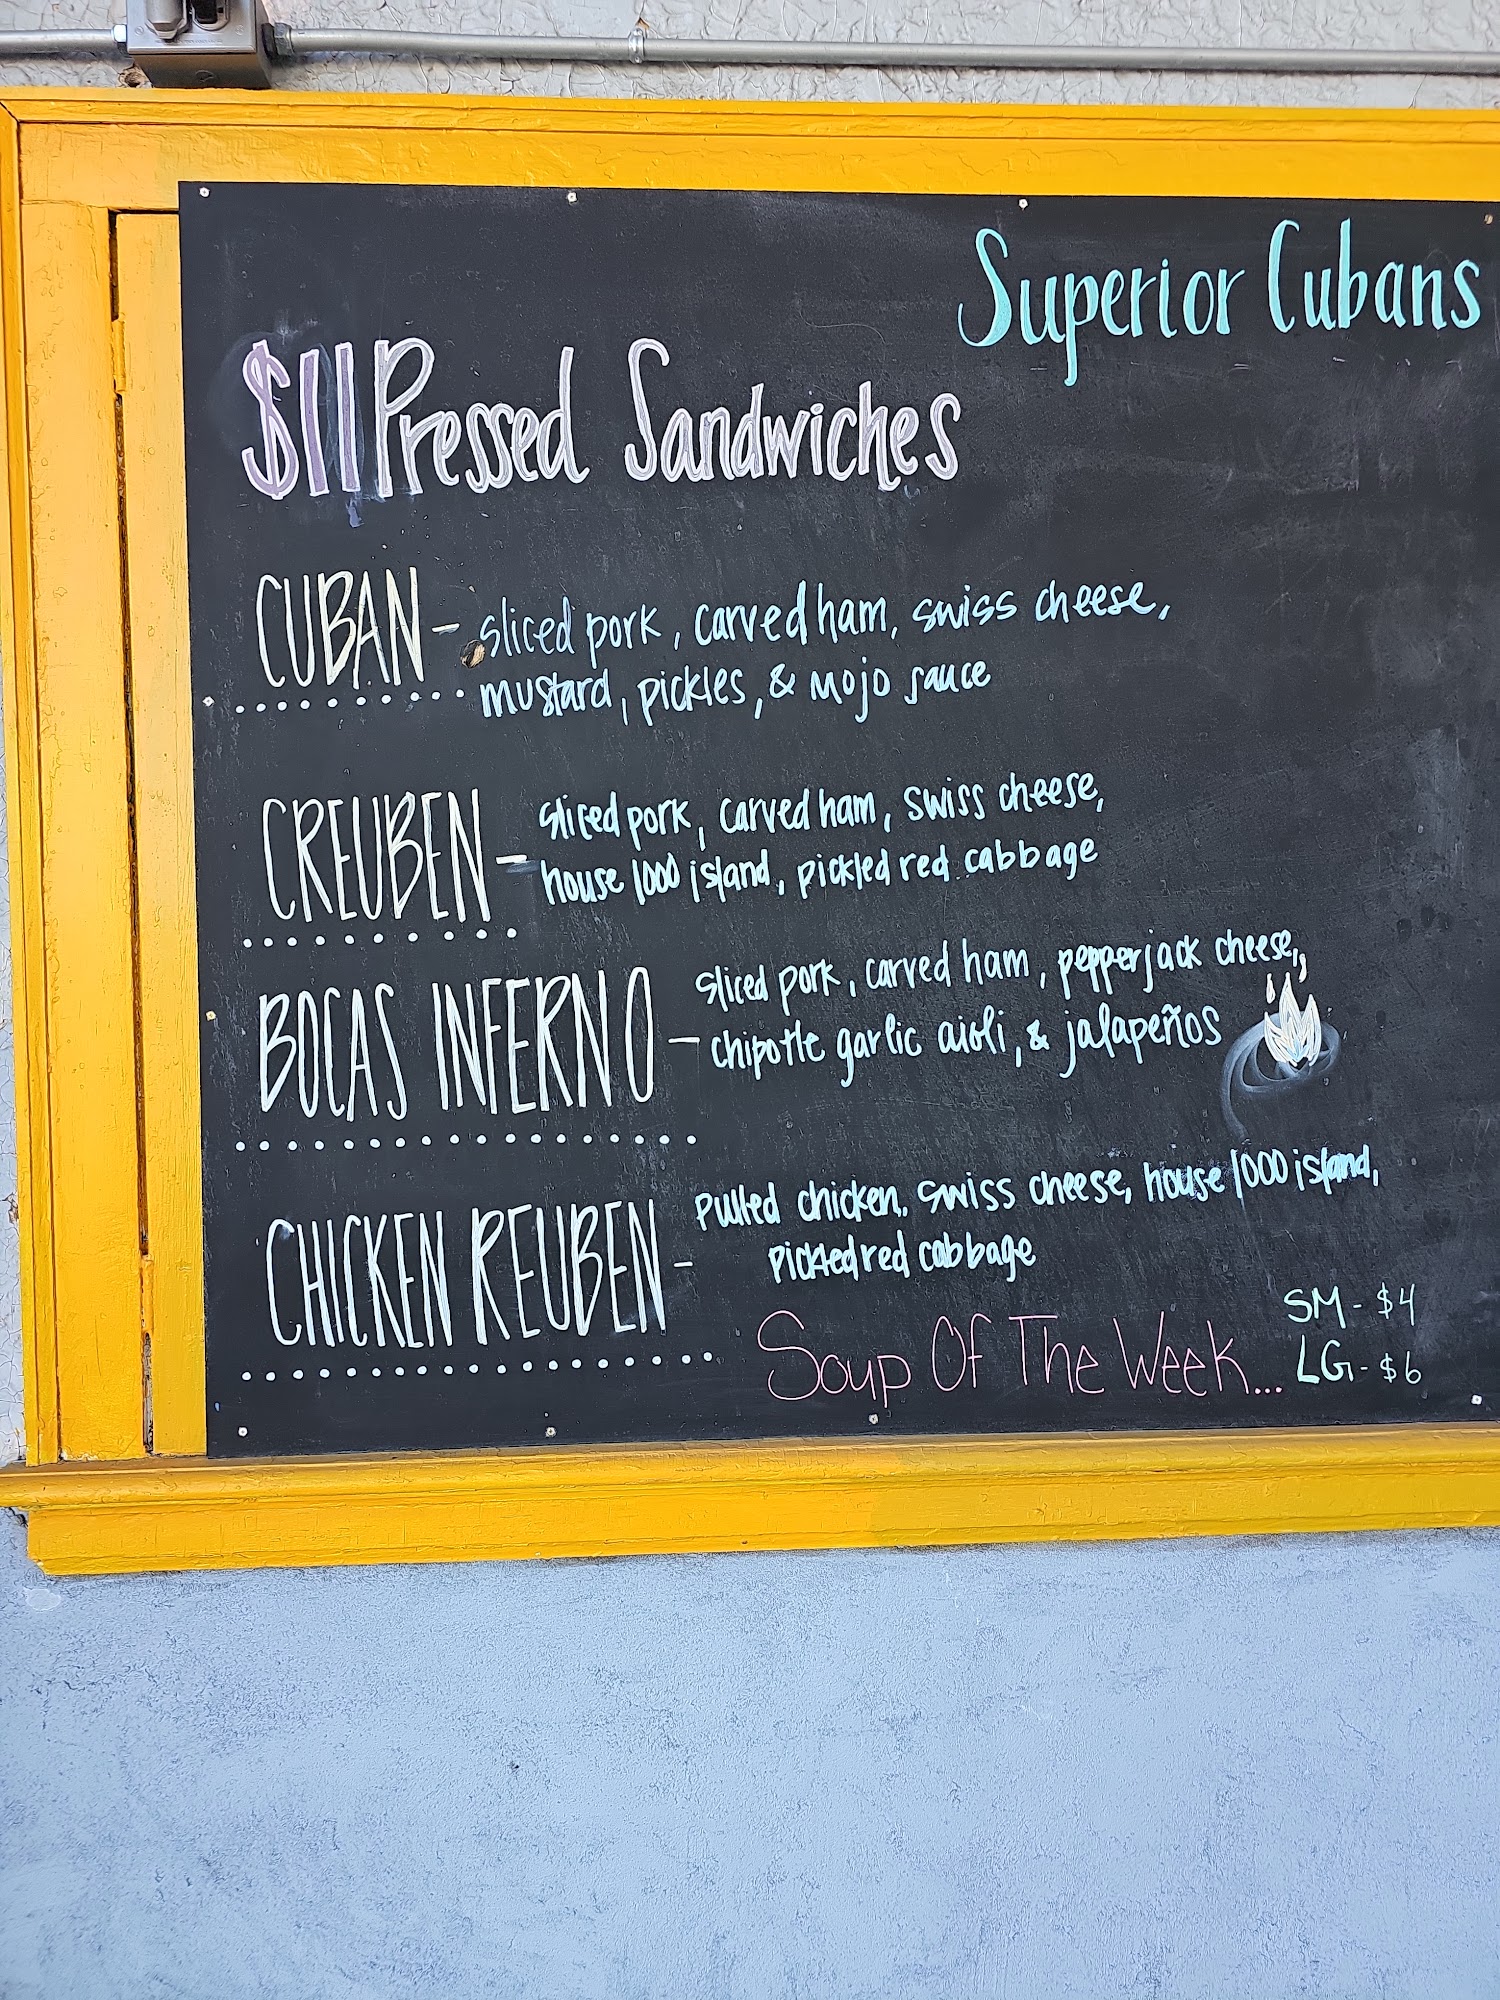 Superior Cubans
$11 Pressed Sandwiches
CUBAN - sliced pork, carved ham, swiss cheese,
mustard, pickles, & mojo sauce
CREUBEN - sliced pork, carved ham, swiss cheese,
house 1000 island, pickled red cabbage
BOCAS INFERNO - sliced pork, carved ham, pepperjack cheese,
chipotle garlic aioli, & jalapeños
CHICKEN REUBEN - pulled chicken, swiss cheese, house 1000 island,
pickled red cabbage
Soup Of The Week... SM - $4
LG - $6